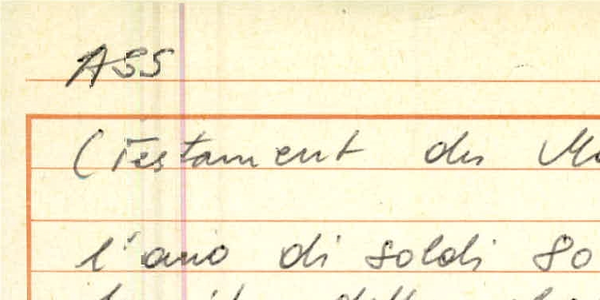 ASS
(Testament du
l'ano di soldi 80